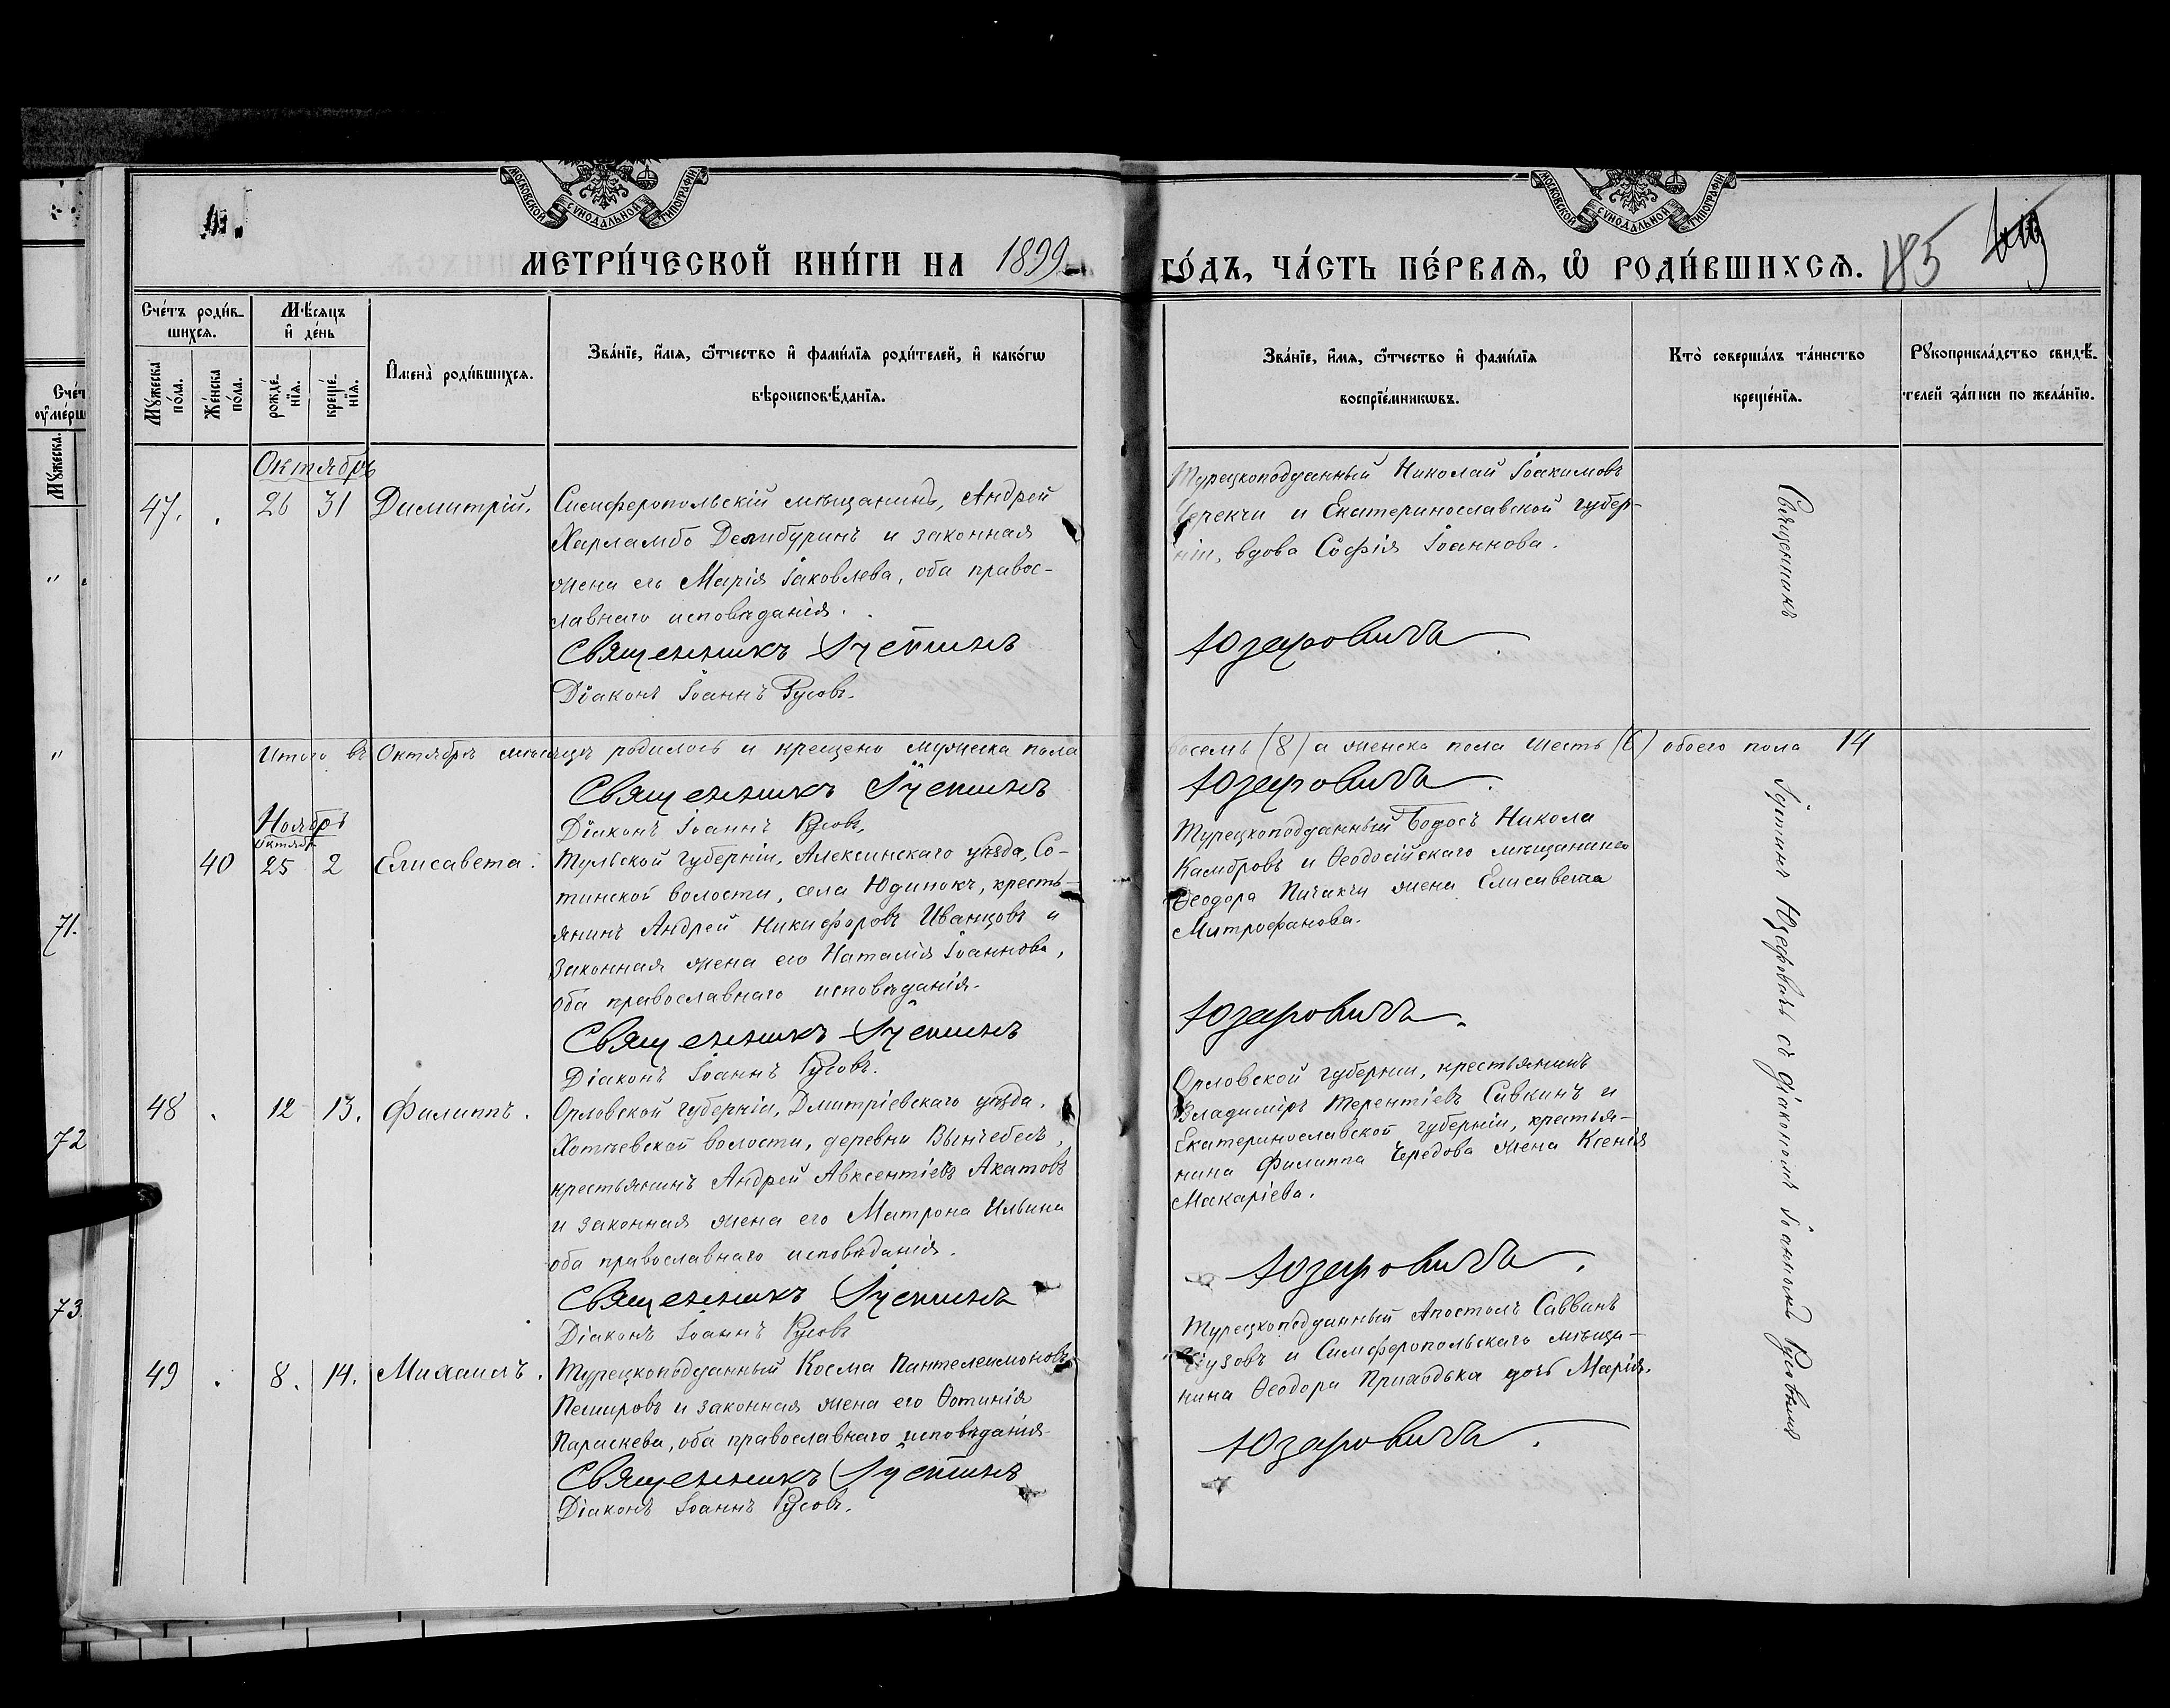 МОСКОВСКОЙ СѴНОДАЛЬНОЙ ТИПОГРАФІИ
МОСКОВСКОЙ СѴНОДАЛЬНОЙ ТИПОГРАФІИ
МЕТРИ́ЧЕСКОЙ КНИ́ГИ НА 1899
ГО́ДЪ, ЧА́СТЬ ПЕ́РВАѦ, Ѡ РОДИ́ВШИХСѦ. 185
Сче́тъ роди́в-
шихсѧ.
Мꙋ́жеска по́ла.
Же́нска по́ла.
Мѣ́сяцъ
и҆ де́нь
рожде́-
нїѧ.
креще́-
нїѧ.
И҆мена̀ роди́вшихсѧ.
Зва́нїе, и҆́мѧ, ѻ҆́тчество и҆ фами́лїѧ роди́телей, и҆ како́гѡ
вѣроисповѣ́данїѧ.
Зва́нїе, и҆́мѧ, ѻ҆́тчество и҆ фами́лїѧ
воспрїе́мникѡвъ.
Кто̀ соверша́лъ та́инство
креще́нїѧ.
Рꙋкоприкла́дство свидѣ́-
телей за́писи по жела́нїю.
Октябрь
47. 26 31 Димитрій.
Симферопольскій мѣщанинъ, Андрей
Харламбо Дембуринъ и законная
жена его Марія Іаковлева, оба правос-
лавнаго исповѣданія.
Священникъ Іустинъ
Діаконъ Іоаннъ Русовъ.
Турецкоподданный Николай Іоакимовъ
Черекчи и Екатеринославской губер-
ніи, вдова Софія Іоаннова.
Юзефовичъ.
Священникъ
Итого въ Октябрѣ мѣсяцѣ родилось и крещено мужеска пола
восемь (8) а женска пола шесть (6) обоего пола 14
Священникъ Іустинъ
Юзефовичъ.
Діаконъ Іоаннъ Русовъ.
Ноябрь
Октябр.
40 25 2 Елисавета.
Тульской губерніи, Алексинскаго уѣзда, Со-
тинской волости, села Юдинокъ, кресть-
янинъ Андрей Никифоровъ Иванцовъ и
законная жена его Наталія Іоаннова,
оба православнаго исповѣданія.
Священникъ Іустинъ
Діаконъ Іоаннъ Русовъ.
Турецкоподданный Бодосъ Никола
Камбровъ и Ѳеодосійскаго мѣщанина
Ѳеодора Пичакчи жена Елисавета
Митрофанова.
Юзефовичъ.
Іустинъ Юзефовичъ съ діакономъ Іоанномъ Русовымъ
48 12 13. Филиппъ.
Орловской губерніи, Дмитріевскаго уѣзда,
Хотѣевской волости, деревни Вынчебесъ,
крестьянинъ Андрей Авксентіевъ Акатовъ
и законная жена его Матрона Ильина
оба православнаго исповѣданія.
Священникъ Іустинъ
Діаконъ Іоаннъ Русовъ
Орловской губерніи, крестьянинъ
Владиміръ Терентіевъ Сивкинъ и
Екатеринославской губерніи, крестья-
нина Филиппа Чередова жена Ксенія
Макаріева.
Юзефовичъ.
49 8. 14. Михаилъ.
Турецкоподданный Косма Пантелеимоновъ
Пешировъ и законная жена его Фотинія
Параскева, оба православнаго исповѣданія.
Священникъ Іустинъ
Діаконъ Іоаннъ Русовъ.
Турецкоподданный Апостолъ Саввинъ
и Симферопольскаго мѣща-
нина Ѳеодора Приходька дочь Марія.
Юзефовичъ.
Сче́т
оу҆ме́рш
Мꙋ́жеска.
71.
72
73.